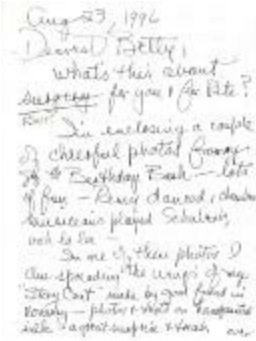 Aug 23, 1996
Dearest Betty,
What's this about
surgery for you & for Pete?
I'm enclosing a couple
of cheerful photos from my
Birthday Bash — lots
of fun — Percy danced,
musicians played Schubert,
ooh la la —
In one of these photos I
am spreading the wings of my
"Story Coat" made by good friend in
— photos & text on transparent
silk — a great surprise &
over